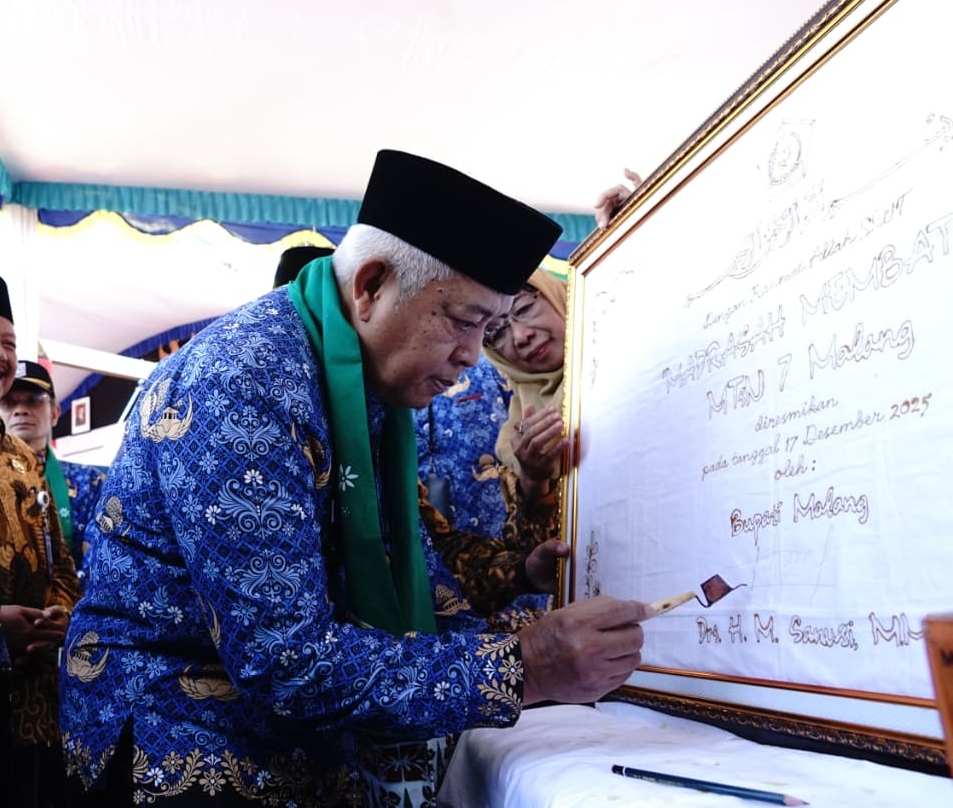 dengan Rahmat Allah SWT
MADRASAH MEMBAT
MTsN 7 Malang
diresmikan
pada tanggal 17 Desember 2025
oleh:
Bupati Malang
Drs. H. M. Sanusi, MM